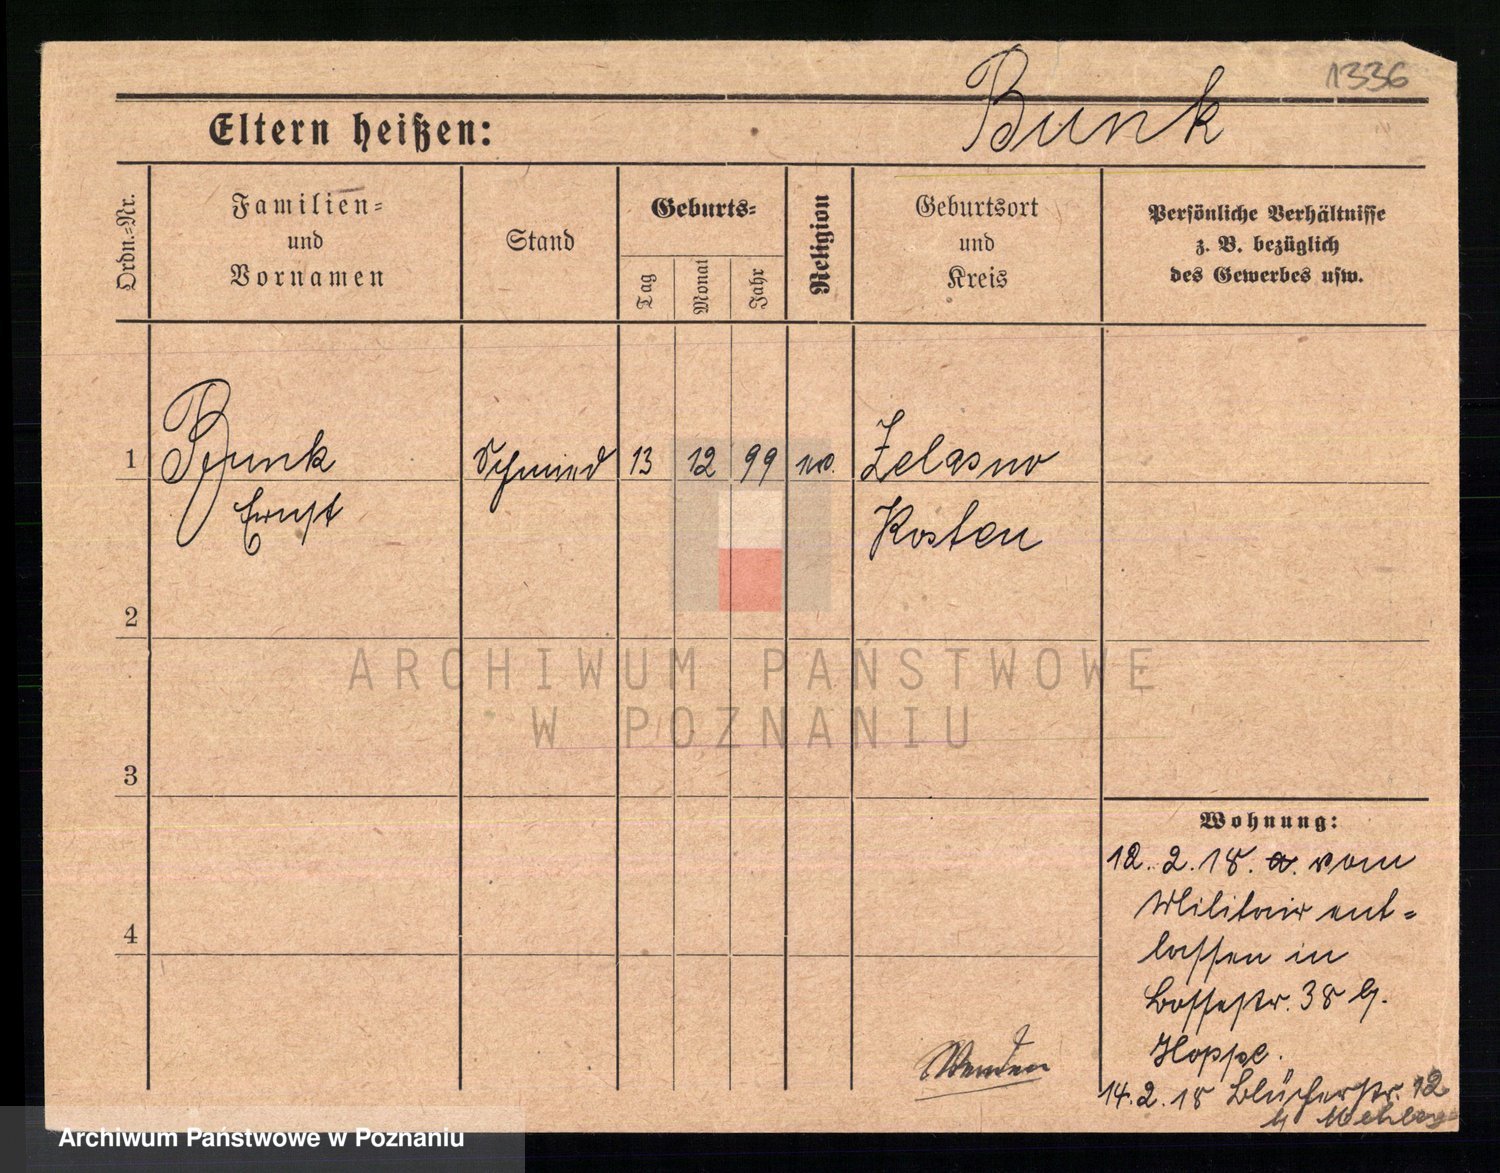 1336
Bunk
Eltern heißen:
Ordn.=Nr.
Familien=
und
Vornamen
Stand
Geburts=
Tag
Monat
Jahr
Religion
Geburtsort
und
Kreis
Persönliche Verhältnisse
z. B. bezüglich
des Gewerbes usw.
1
Bunk
Ernst
Schmied
13
12
99
ev.
Zelasno
Kosten
2
ARCHIWUM PAŃSTWOWE
W POZNANIU
3
4
Wohnung:
12. 2. 18. vom
Militair ent=
lassen in
Bossestr. 38 b.
Hoppe.
14. 2. 18 Blücherstr. 12
Wenden
Archiwum Państwowe w Poznaniu